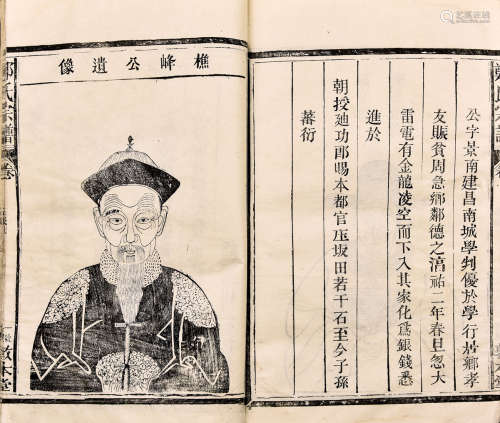 樵峰公遺像
公字景南建昌南城學判優於學行居鄉孝
友賑貧周急鄉鄰德之淳祐二年春旦忽大
雷電有金龍凌空而下入其家化為銀錢悉
進於
朝授廸功郎賜本都官压坂田若干石至今子孫
蕃衍
鄭氏宗譜
卷
敦本堂